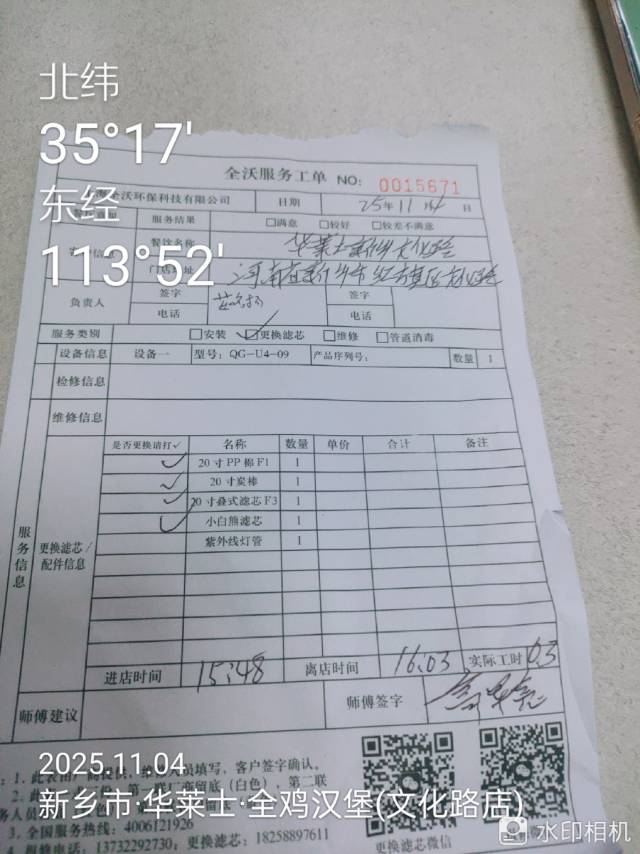 北纬
35°17'
东经
113°52'
全沃服务工单 NO: 0015671
全沃环保科技有限公司 日期 25年11月4日
服务结果 □满意 □较好 □较差不满意
餐饮名称 华莱士新乡文化路
门店地址 河南省新乡市红旗区文化路
负责人 签字 签字
电话 电话
服务类别 □安装 ☑更换滤芯 □维修 □管道消毒
设备信息 设备一 型号: QG-U4-09 产品序列号: 数量 1
检修信息
维修信息
服务信息
更换滤芯/配件信息
是否更换请打✓ 名称 数量 单价 合计 备注
✓ 20寸PP棉F1 1
✓ 20寸炭棒 1
✓ 20寸叠式滤芯F3 1
✓ 小白熊滤芯 1
紫外线灯管 1
进店时间 15:48 离店时间 16:03 实际工时 0.3
师傅建议 师傅签字
2025.11.04
新乡市·华莱士·全鸡汉堡(文化路店)
填写, 客户签字确认。
厂商留底(白色), 第二联
3、全国服务热线: 4006121926
4、报修电话: 13732292730; 更换滤芯: 18258897611
更换滤芯微信
水印相机